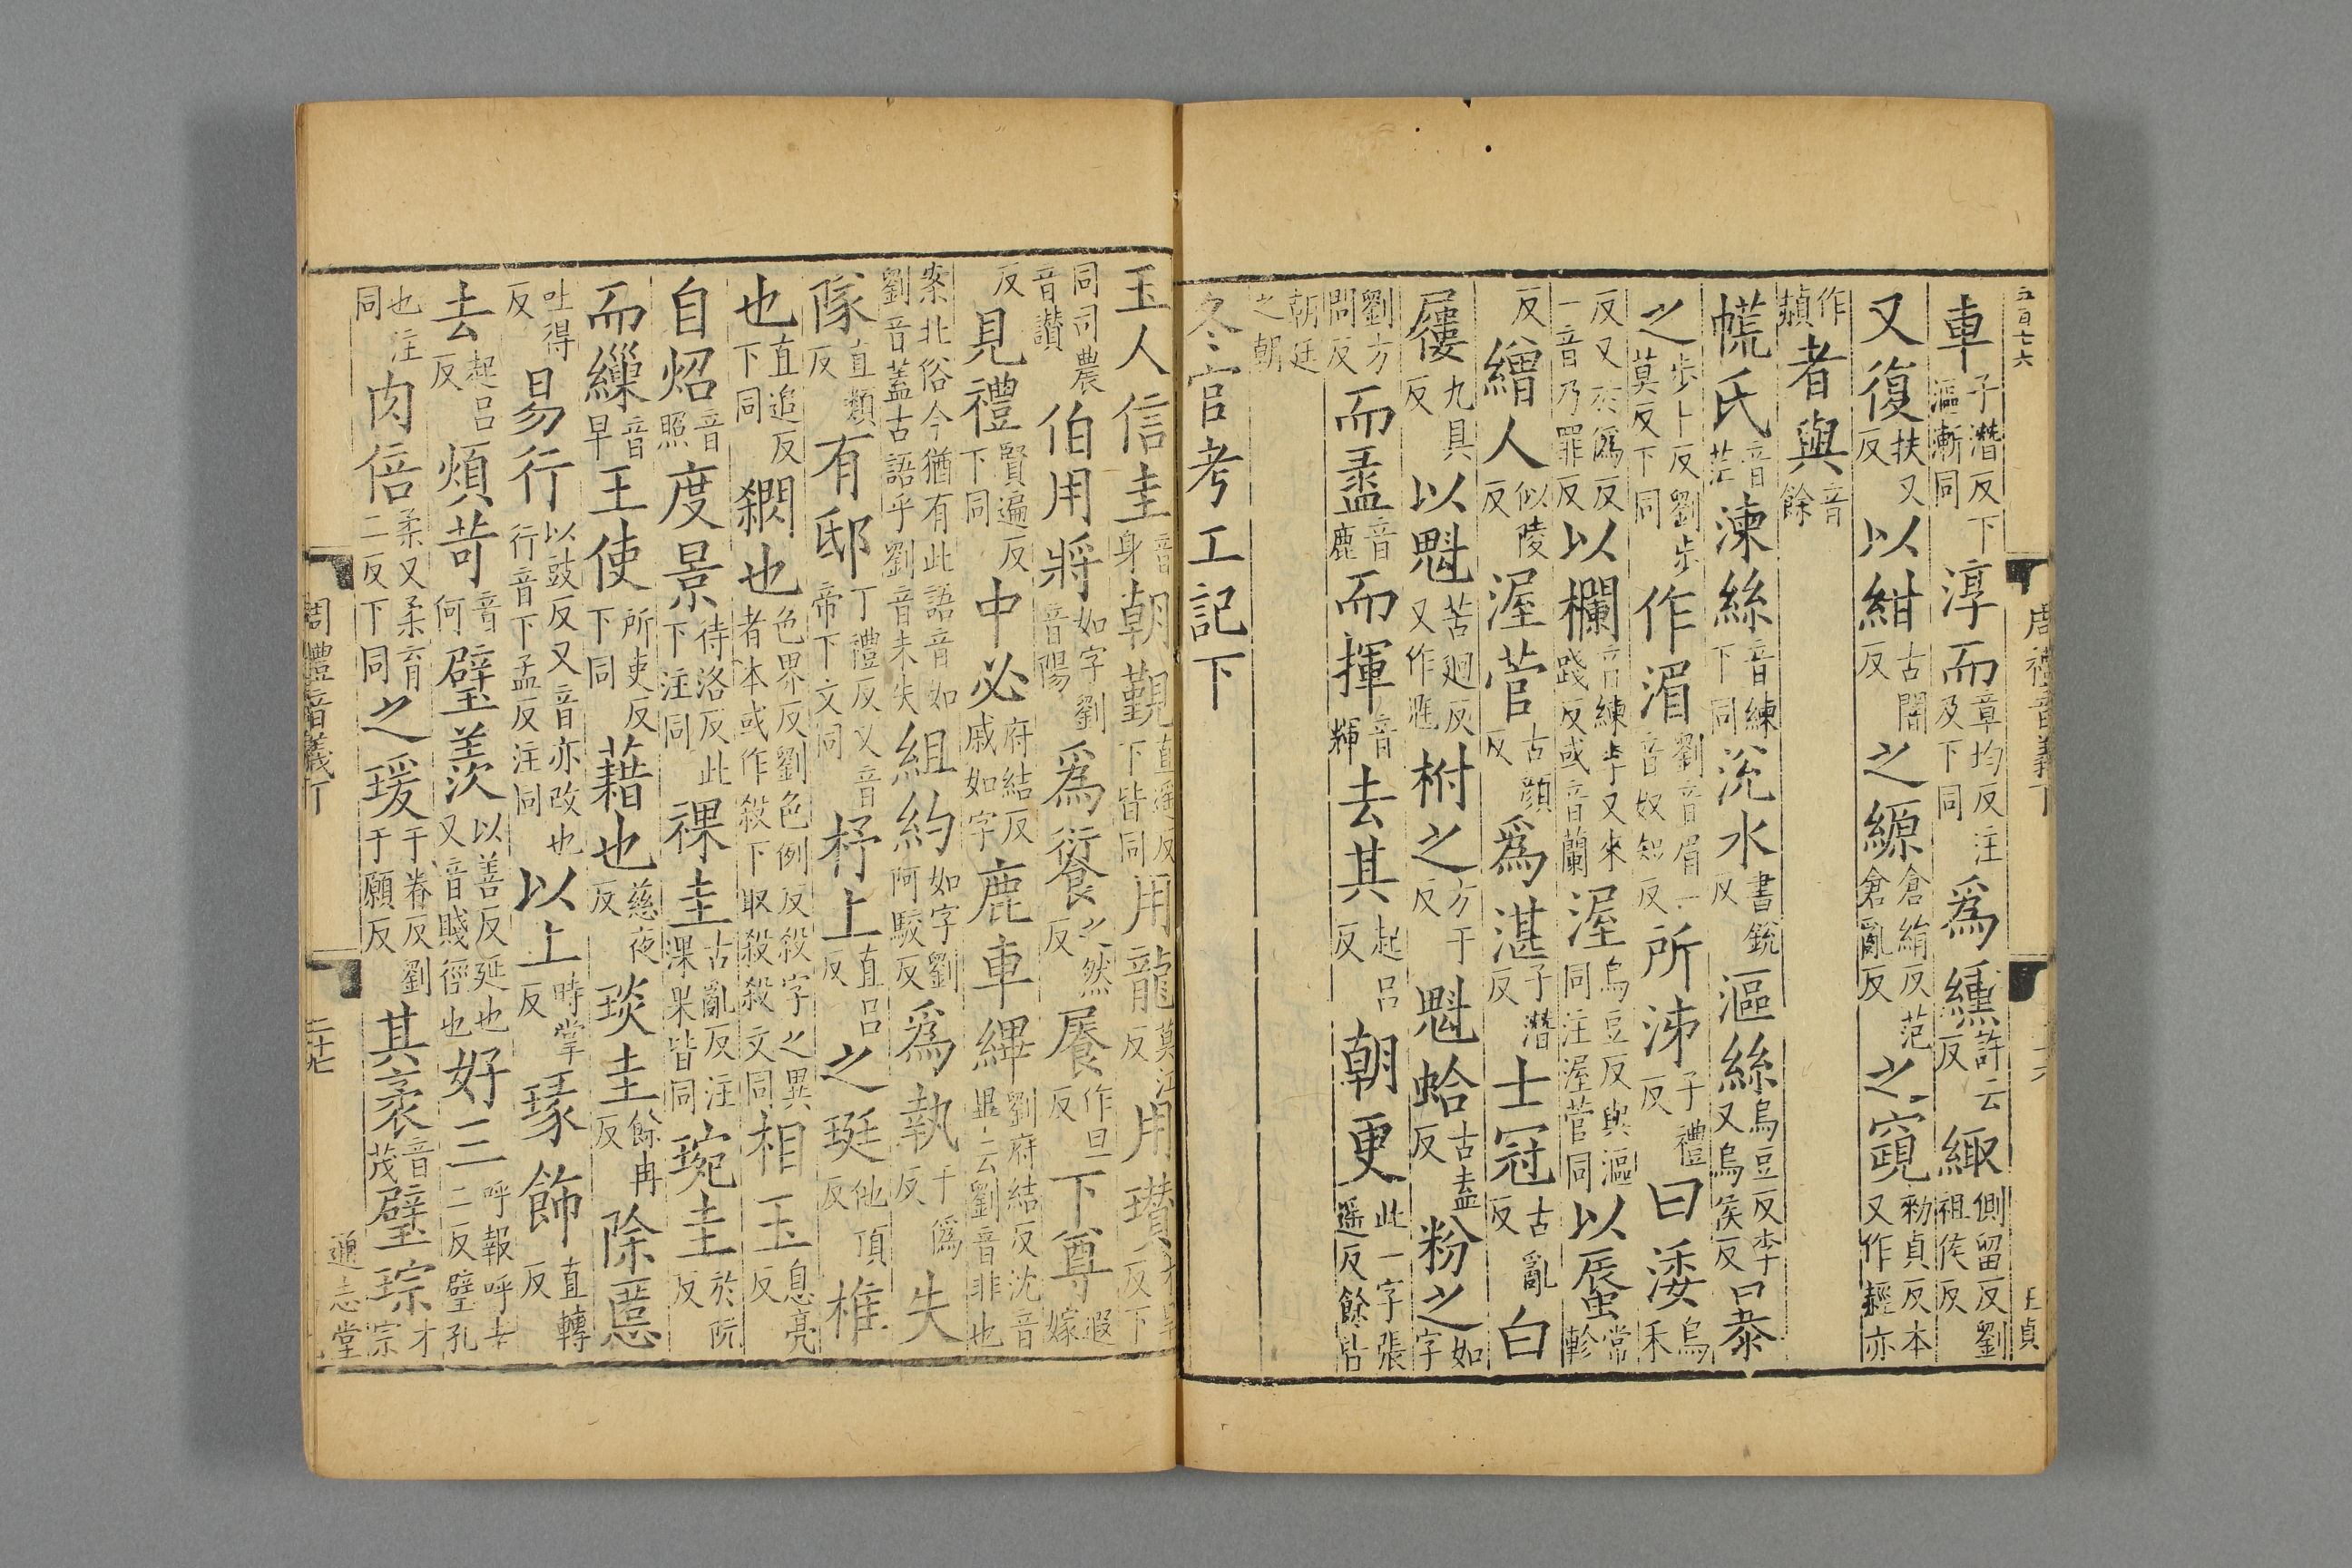 五百七六
車子潛反下漚漸同淳而章均反注及下同爲纁許云反緅側留反劉祖侯反
又復扶又反以紺古闇反之縓倉絹反范倉亂反之窺勑貞反本又作䞓亦
作赬者與音餘
㡛氏音茫湅絲音練下同涗水書銳反漚絲烏豆反李又烏侯反曓
之步卜反劉步莫反下同作湄劉音眉一音奴短反所沸子禮反曰涹烏禾
反又於僞反一音乃罪反以欄音練李又來踐反或音蘭渥烏豆反與漚同注渥菅同以蜃常軫
反繒人似陵反渥菅古顏反爲湛子潛反士冠古亂反白
屨九具反以魁苦迴反又作𣂁柎之方于反魁蛤古盍反粉之如字
劉方問反而盝音鹿而揮音輝去其起呂反朝更此一字張遥反餘皆
朝廷之朝
冬官考工記下
周禮音義下
王貞
玉人信圭音身朝覲直遥反下皆同用龍莫江反用瓚才旱反下
同司農音讃伯用將如字劉音陽爲餰之然反屨作旦反下尊遐嫁
反見禮賢遍反下同中必府結反戚如字鹿車縪劉府結反沈音畢云劉音非也
案北俗今猶有此語音如劉音蓋古語乎劉音未失組約如字劉阿駮反爲執于僞反失
隊直類反有邸丁禮反又音帝下文同杼上直呂反之珽他頂反椎
也直追反下同閷也色界反劉色例反殺字之異者本或作殺下取殺殺文同相玉息亮反
自炤音照度景待洛反此下注同祼圭古亂反注淉果皆同琬圭於阮反
而繅音早王使所吏反下同藉也慈夜反琰圭餘冉反除慝
吐得反易行以豉反又音亦改也行音下孟反注同以上時掌反瑑飾直轉反
去起呂反煩苛音何璧羡以善反延也又音賤徑也好三呼報呼去二反璧孔
也注同肉倍柔又柔育二反下同之瑗于眷反劉于願反其袤音茂璧琮才宗
周禮音義下
二十七
通志堂